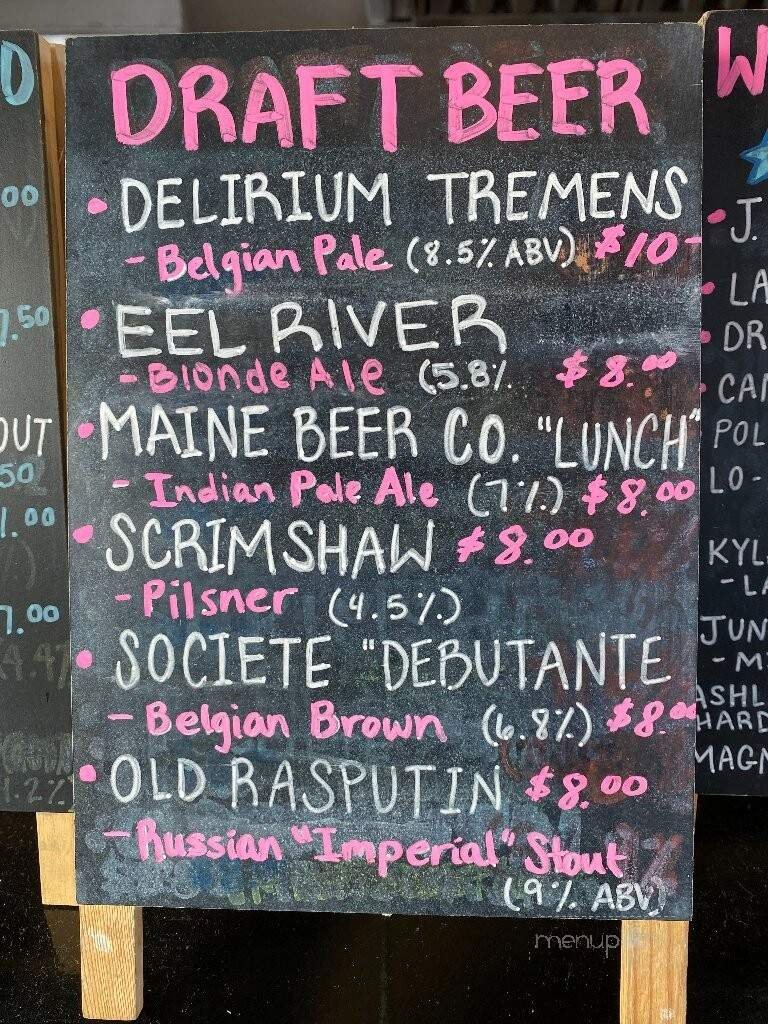 DRAFT BEER
• DELIRIUM TREMENS
- Belgian Pale (8.5% ABV) $10-
• EEL RIVER
- Blonde Ale (5.8% $8.00
• MAINE BEER CO. "LUNCH"
- Indian Pale Ale (7%) $8.00
• SCRIMSHAW $8.00
- Pilsner (4.5%)
• SOCIETE "DEBUTANTE
- Belgian Brown (6.8%) $8.00
• OLD RASPUTIN $8.00
- Russian "Imperial" Stout
(9% ABV)
menup
D
00
7.50
OUT
50
1.00
7.00
W
• J.
• LA
• DR
• CAN
POL
LO-
KYL
- LA
JUN
- M
ASHL
HARD
MAGN